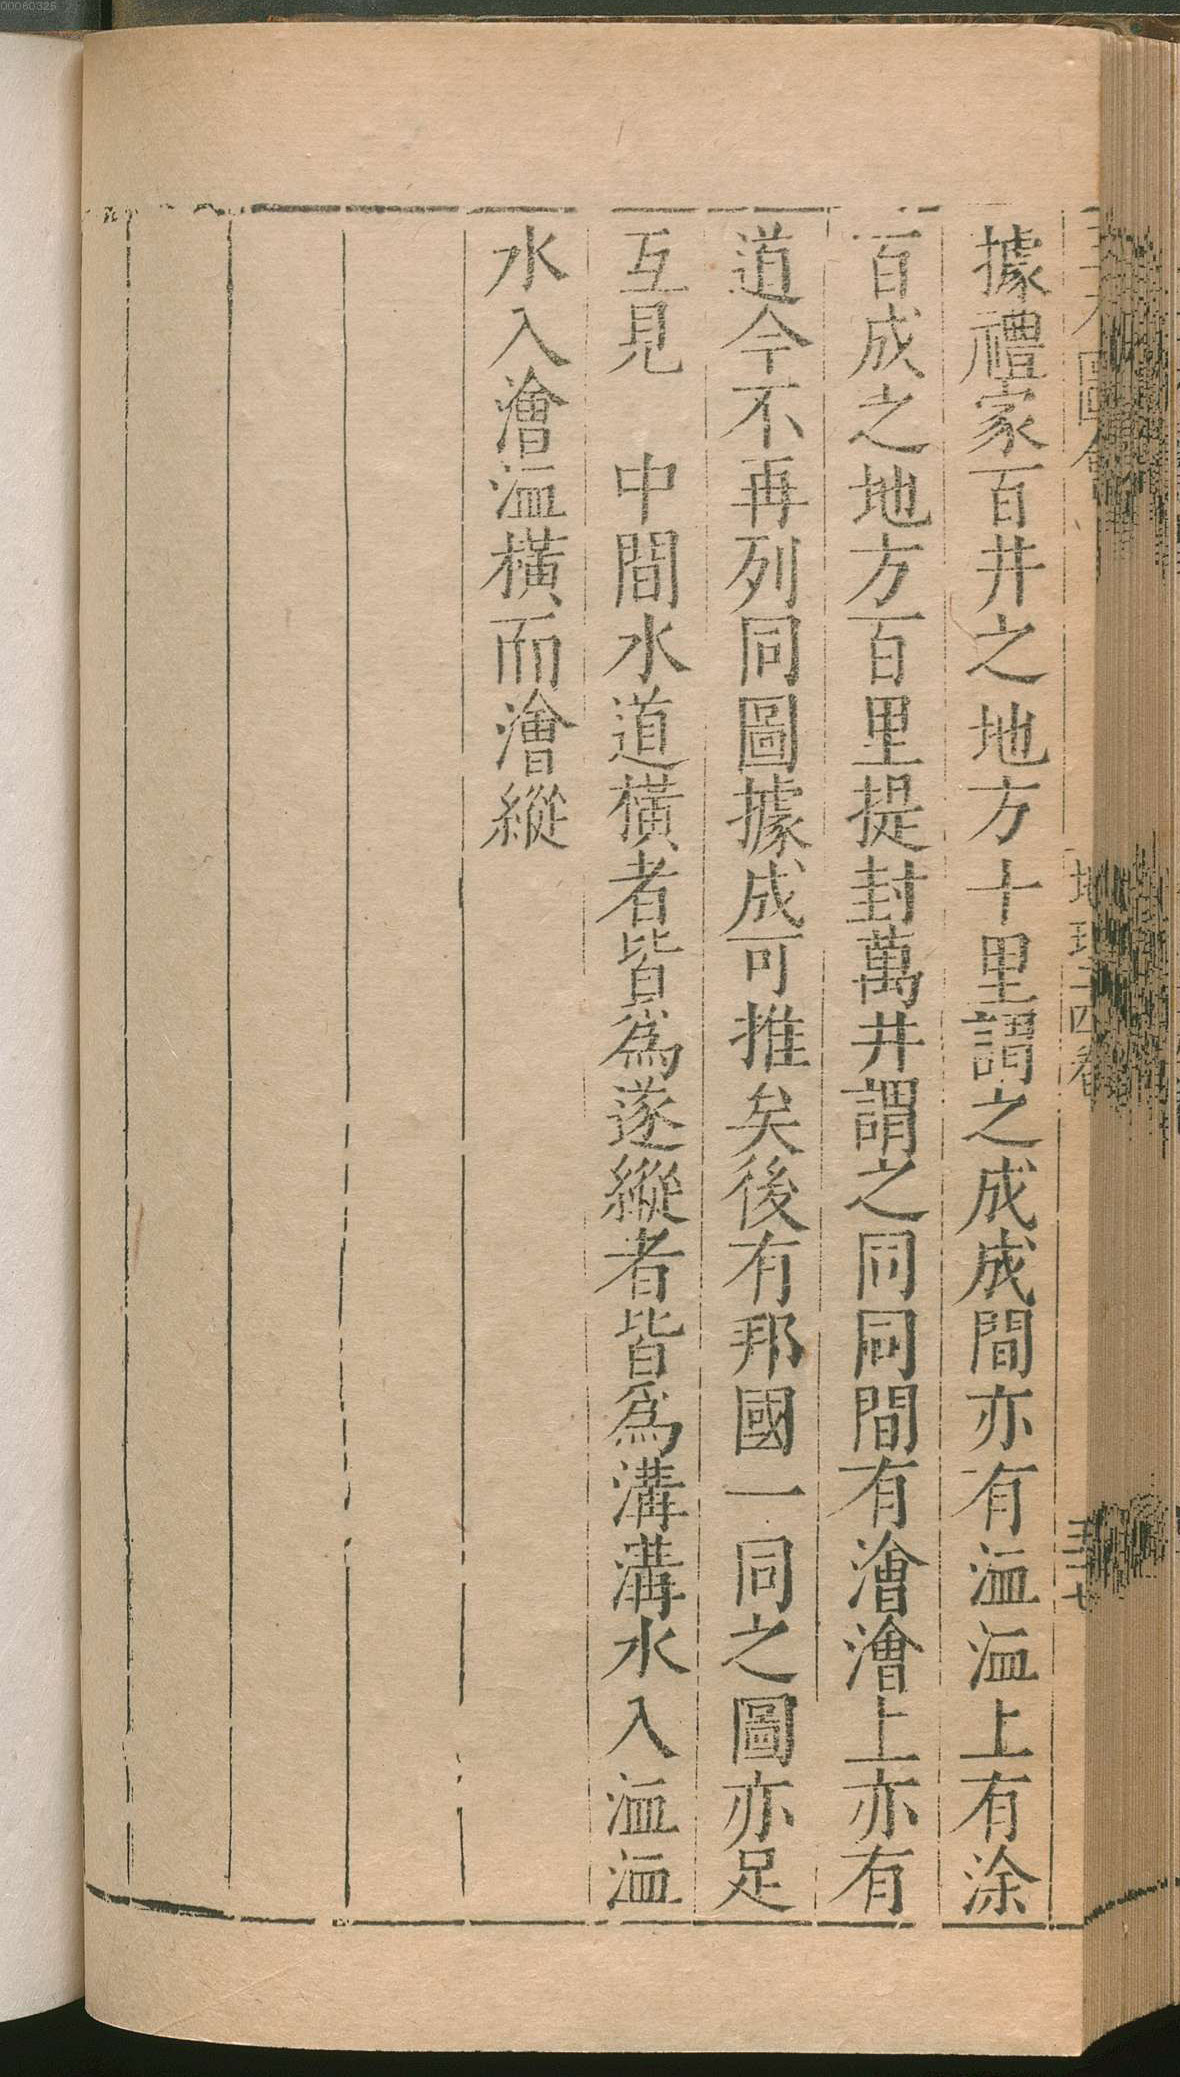 據禮家百井之地方十里謂之成成間亦有洫洫上有涂
百成之地方百里提封萬井謂之同同間有澮澮上亦有
道今不再列同圖據成可推矣後有邦國一同之圖亦足
互見　中間水道橫者皆爲遂縱者皆爲溝溝水入洫洫
水入澮洫橫而澮縱
00060325